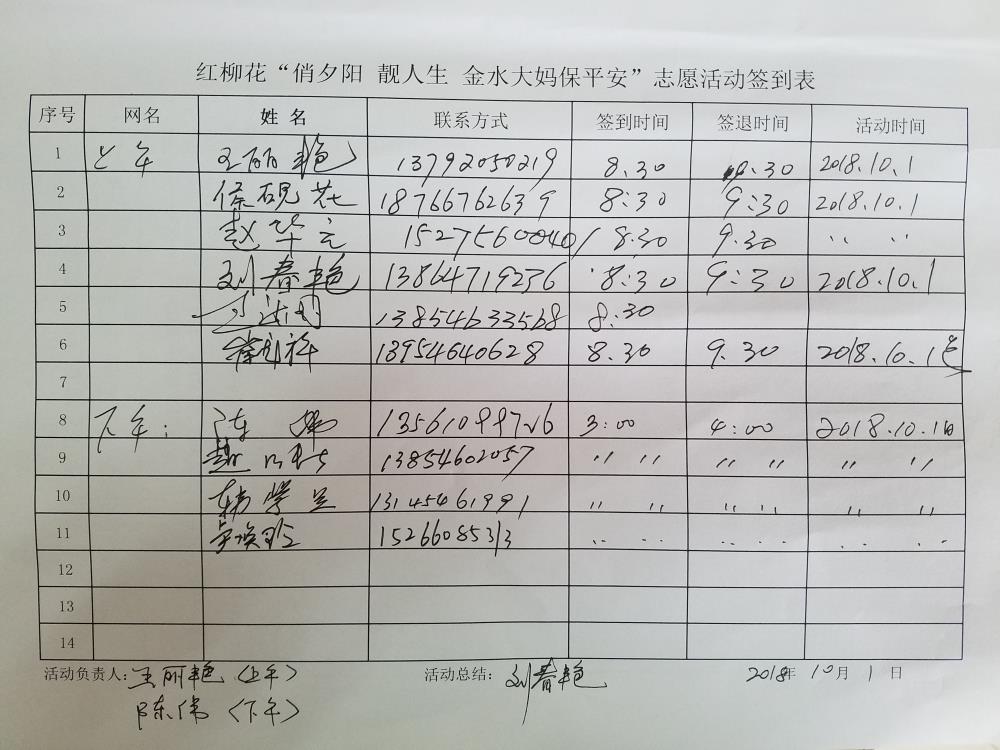 红柳花“俏夕阳 靓人生 金水大妈保平安”志愿活动签到表
序号 网名 姓名 联系方式 签到时间 签退时间 活动时间
1 上午 王丽艳 13792050219 8.30 9.30 2018.10.1
2 18766762639 8:30 9:30 2018.10.1
3 赵华云 15275600401 8.30 9.30 〃 〃
4 刘春艳 13864719236 8:30 9:30 2018.10.1
5 13854633568 8:30
6 13954640628 8.30 9.30 2018.10.1
7
8 下午: 陈伟 13561099726 3:00 4:00 2018.10.1日
9 13854602057 〃 〃 〃 〃 〃 〃
10 韩学兰 13145461991 〃 〃 〃 〃 〃 〃
11 15266085313 〃 〃 〃 〃 〃 〃
12
13
14
活动负责人:王丽艳(上午) 活动总结:刘春艳 2018年10月1日
陈伟(下午)